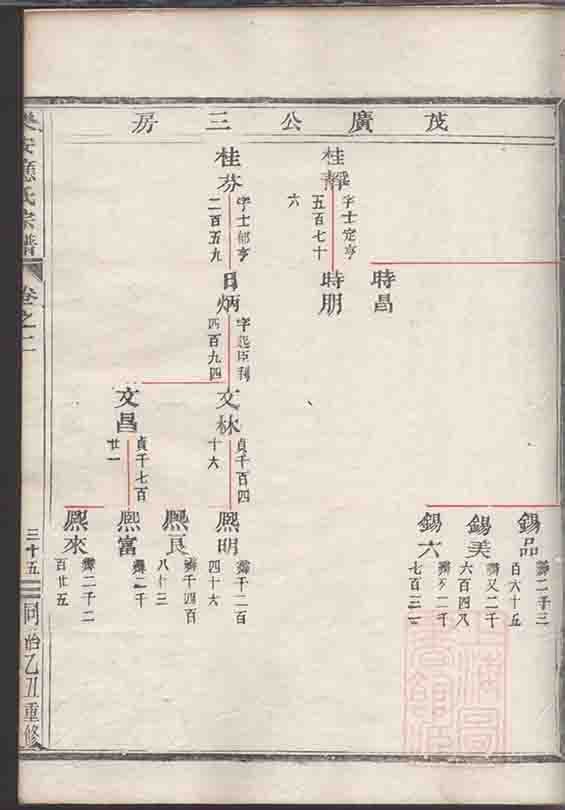 茂廣公三房
時昌
錫品
齊二千三
百六十五
錫美
齊又二千
六百四八
錫六
齊又二千
七百三一
桂
字士定亨
五百七十
六
時朋
桂芬
字士郁亨
二百五九
日炳
字起臣利
四百九四
文林
貞千百四
十六
熙明
齊千二百
四十六
熙良
齊千四百
八十三
文昌
貞千七百
廿一
熙富
齊二千
熙來
齊二千二
百廿五
安應氏宗譜
卷之二
三十五
同治乙丑重修